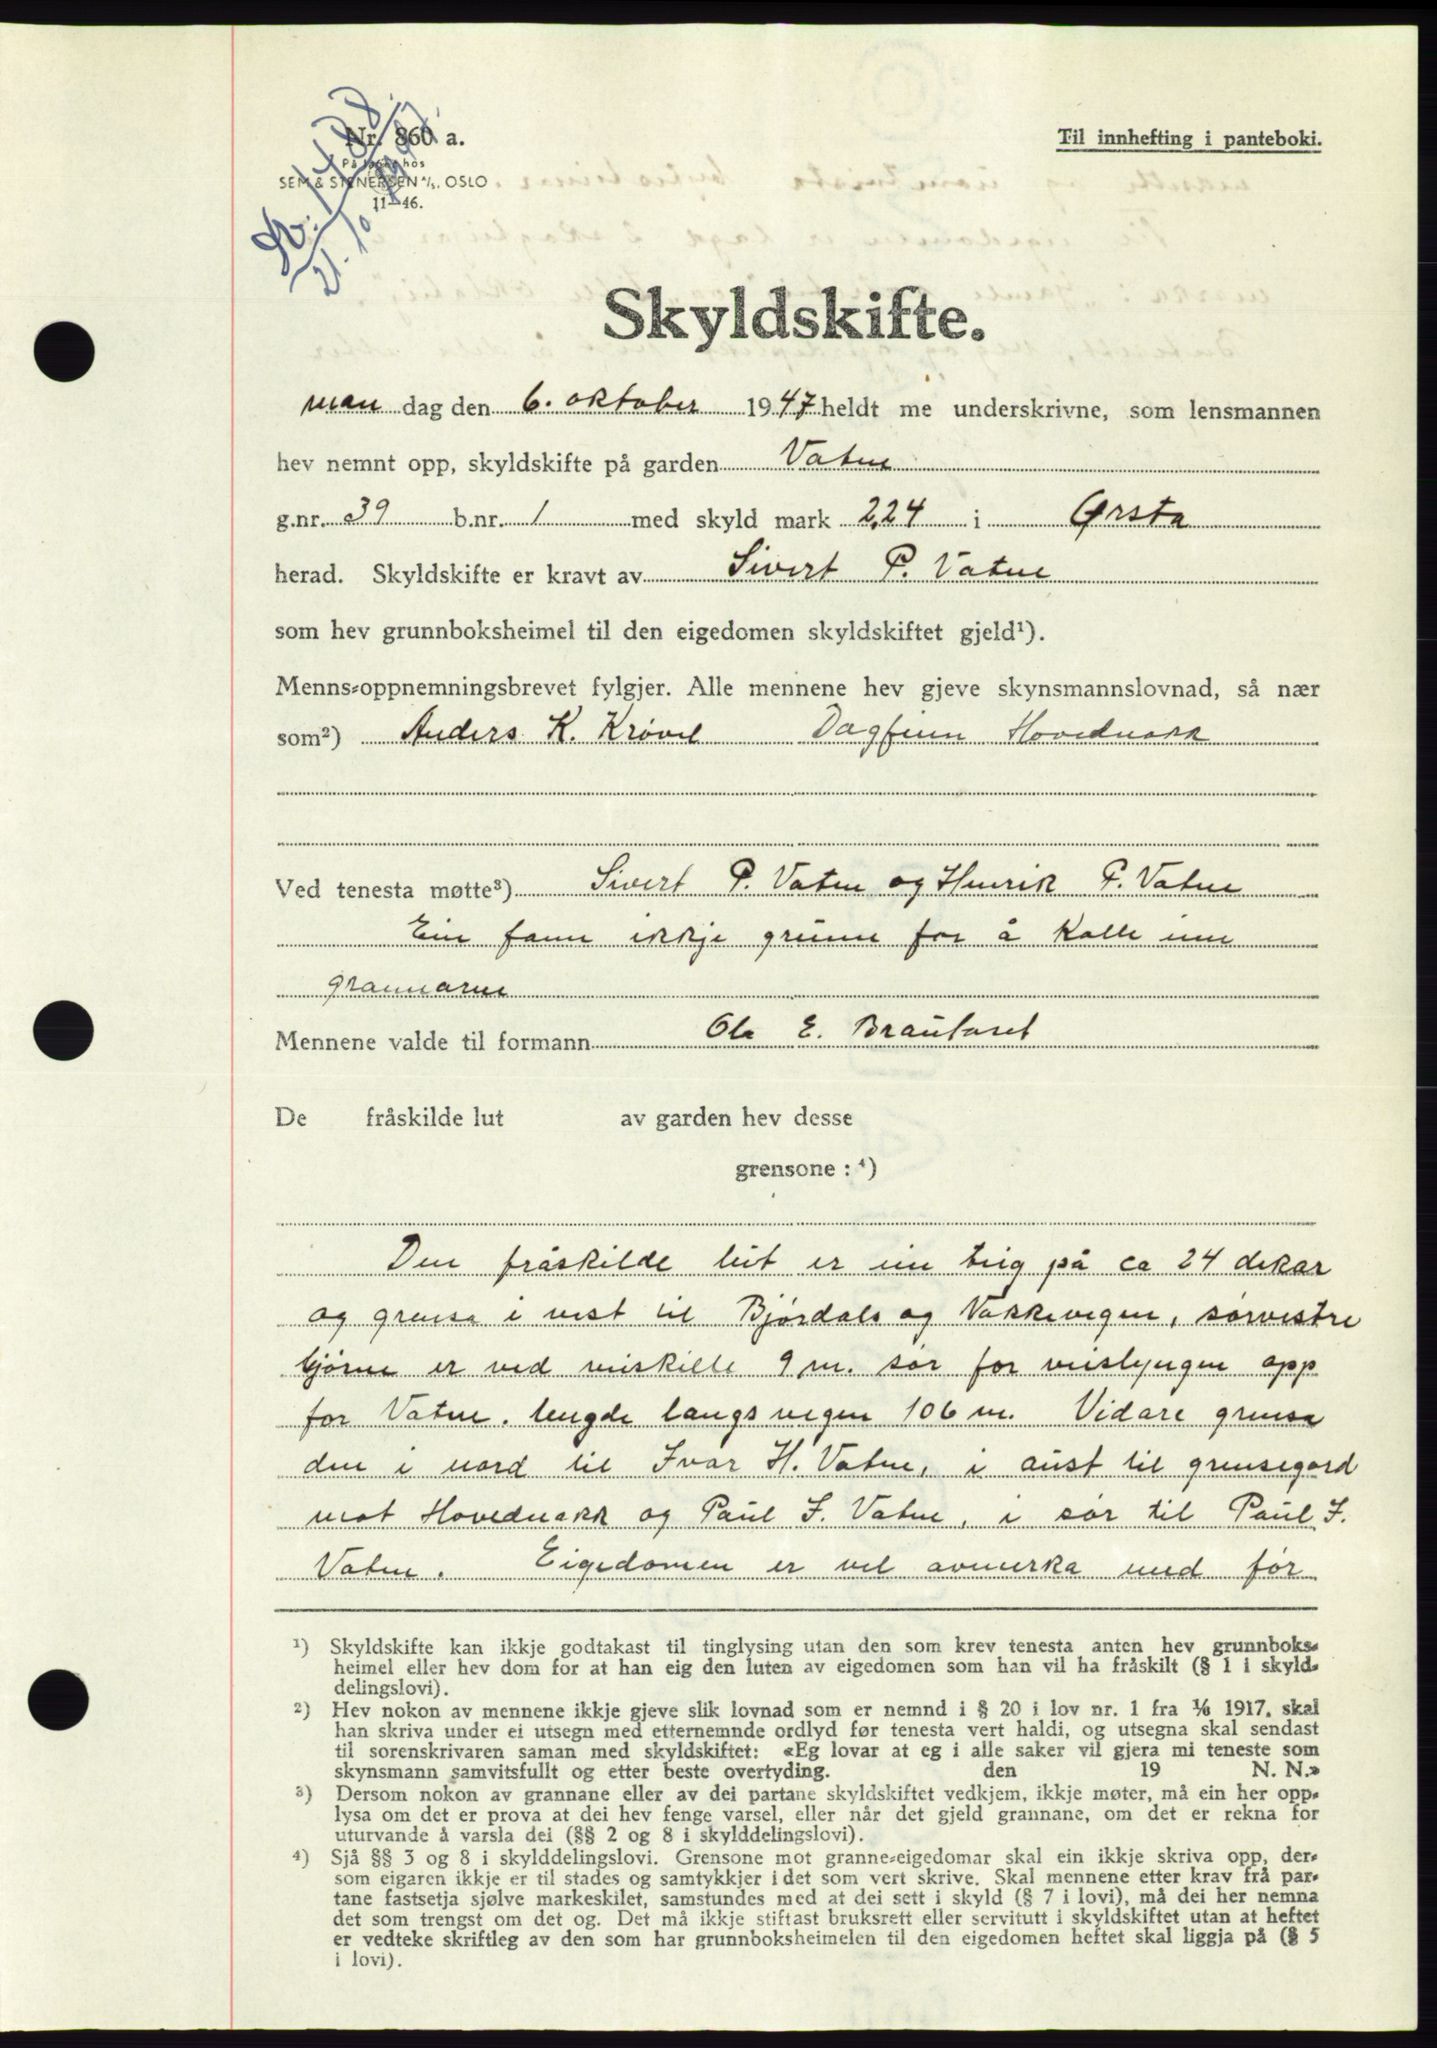 Nr. 860 a.
På lager hos
SEM & STENERSEN A/S, OSLO
11—46.
Til innhefting i panteboki.
Skyldskifte.
man dag den 6. oktober 1947 heldt me underskrivne, som lensmannen
hev nemnt opp, skyldskifte på garden Vatne
g.nr. 39 b.nr. 1 med skyld mark 2,24 i Ørsta
herad. Skyldskifte er kravt av Sivert P. Vatne
som hev grunnboksheimel til den eigedomen skyldskiftet gjeld¹).
Menns-oppnemningsbrevet fylgjer. Alle mennene hev gjeve skynsmannslovnad, så nær
som²) Anders K. Krøvel Dagfinn Hovednakk
Ved tenesta møtte³) Sivert P. Vatne og Henrik P. Vatne
Ein fann ikkje grunn for å kalle inn
grannarne
Mennene valde til formann Ola E. Brautaset
De fråskilde lut av garden hev desse
grensone : ⁴)
Den fråskilde lut er ein teig på ca 24 dekar
og grensa i vest til Bjørdals og Nakkevegen, sørvestre
hjørne er ved 9 m. sør for opp
for Vatne. lengde langs vegen 106 m. Vidare grensa
den i nord til Ivar H. Vatne, i aust til grensegard
mot Hovednakk og Paul I. Vatne, i sør til Paul I.
Vatne. Eigedomen er vel avmerka med før
¹) Skyldskifte kan ikkje godtakast til tinglysing utan den som krev tenesta anten hev grunnboks-
heimel eller hev dom for at han eig den luten av eigedomen som han vil ha fråskilt (§ 1 i skyld-
delingslovi).
²) Hev nokon av mennene ikkje gjeve slik lovnad som er nemnd i § 20 i lov nr. 1 fra 1/6 1917, skal
han skriva under ei utsegn med etternemnde ordlyd før tenesta vert haldi, og utsegna skal sendast
til sorenskrivaren saman med skyldskiftet: «Eg lovar at eg i alle saker vil gjera mi teneste som
skynsmann samvitsfullt og etter beste overtyding. den 19 N. N.»
³) Dersom nokon av grannane eller av dei partane skyldskiftet vedkjem, ikkje møter, må ein her opp-
lysa om det er prova at dei hev fenge varsel, eller når det gjeld grannane, om det er rekna for
uturvande å varsla dei (§§ 2 og 8 i skylddelingslovi).
⁴) Sjå §§ 3 og 8 i skylddelingslovi. Grensone mot granne-eigedomar skal ein ikkje skriva opp, der-
som eigaren ikkje er til stades og samtykkjer i det som vert skrive. Skal mennene etter krav frå par-
tane fastsetja sjølve markeskilet, samstundes med at dei sett i skyld (§ 7 i lovi), må dei her nemna
det som trengst om det og. Det må ikkje stiftast bruksrett eller servitutt i skyldskiftet utan at heftet
er vedteke skriftleg av den som har grunnboksheimelen til den eigedomen heftet skal liggja på (§ 5
i lovi).